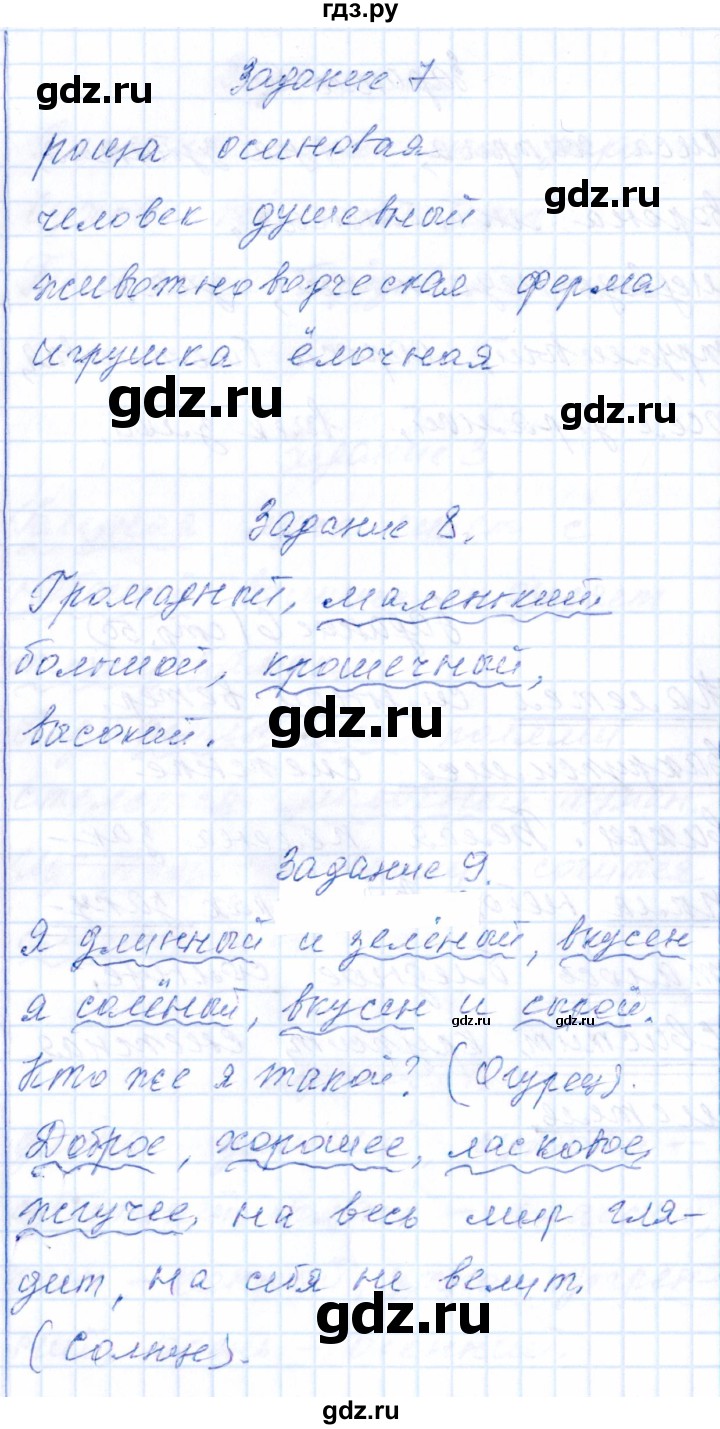 гдз.ру
Задание 7
gdz.ru
роща осиновая
gdz.ru
человек душевный
животноводческая ферма
игрушка ёлочная
gdz.ru
gdz.ru
Задание 8.
Громадный, маленький
большой, крошечный,
gdz.ru
высокий.
Задание 9.
Я длинный и зелёный, вкусен
я солёный, вкусен и сырой.
gdz.ru
gdz.ru
Кто же я такой? (Огурец).
Доброе, хорошее, ласковое,
жгучее, на весь мир гля-
дит, на себя не велит.
gdz.ru
(Солнце).
gdz.ru